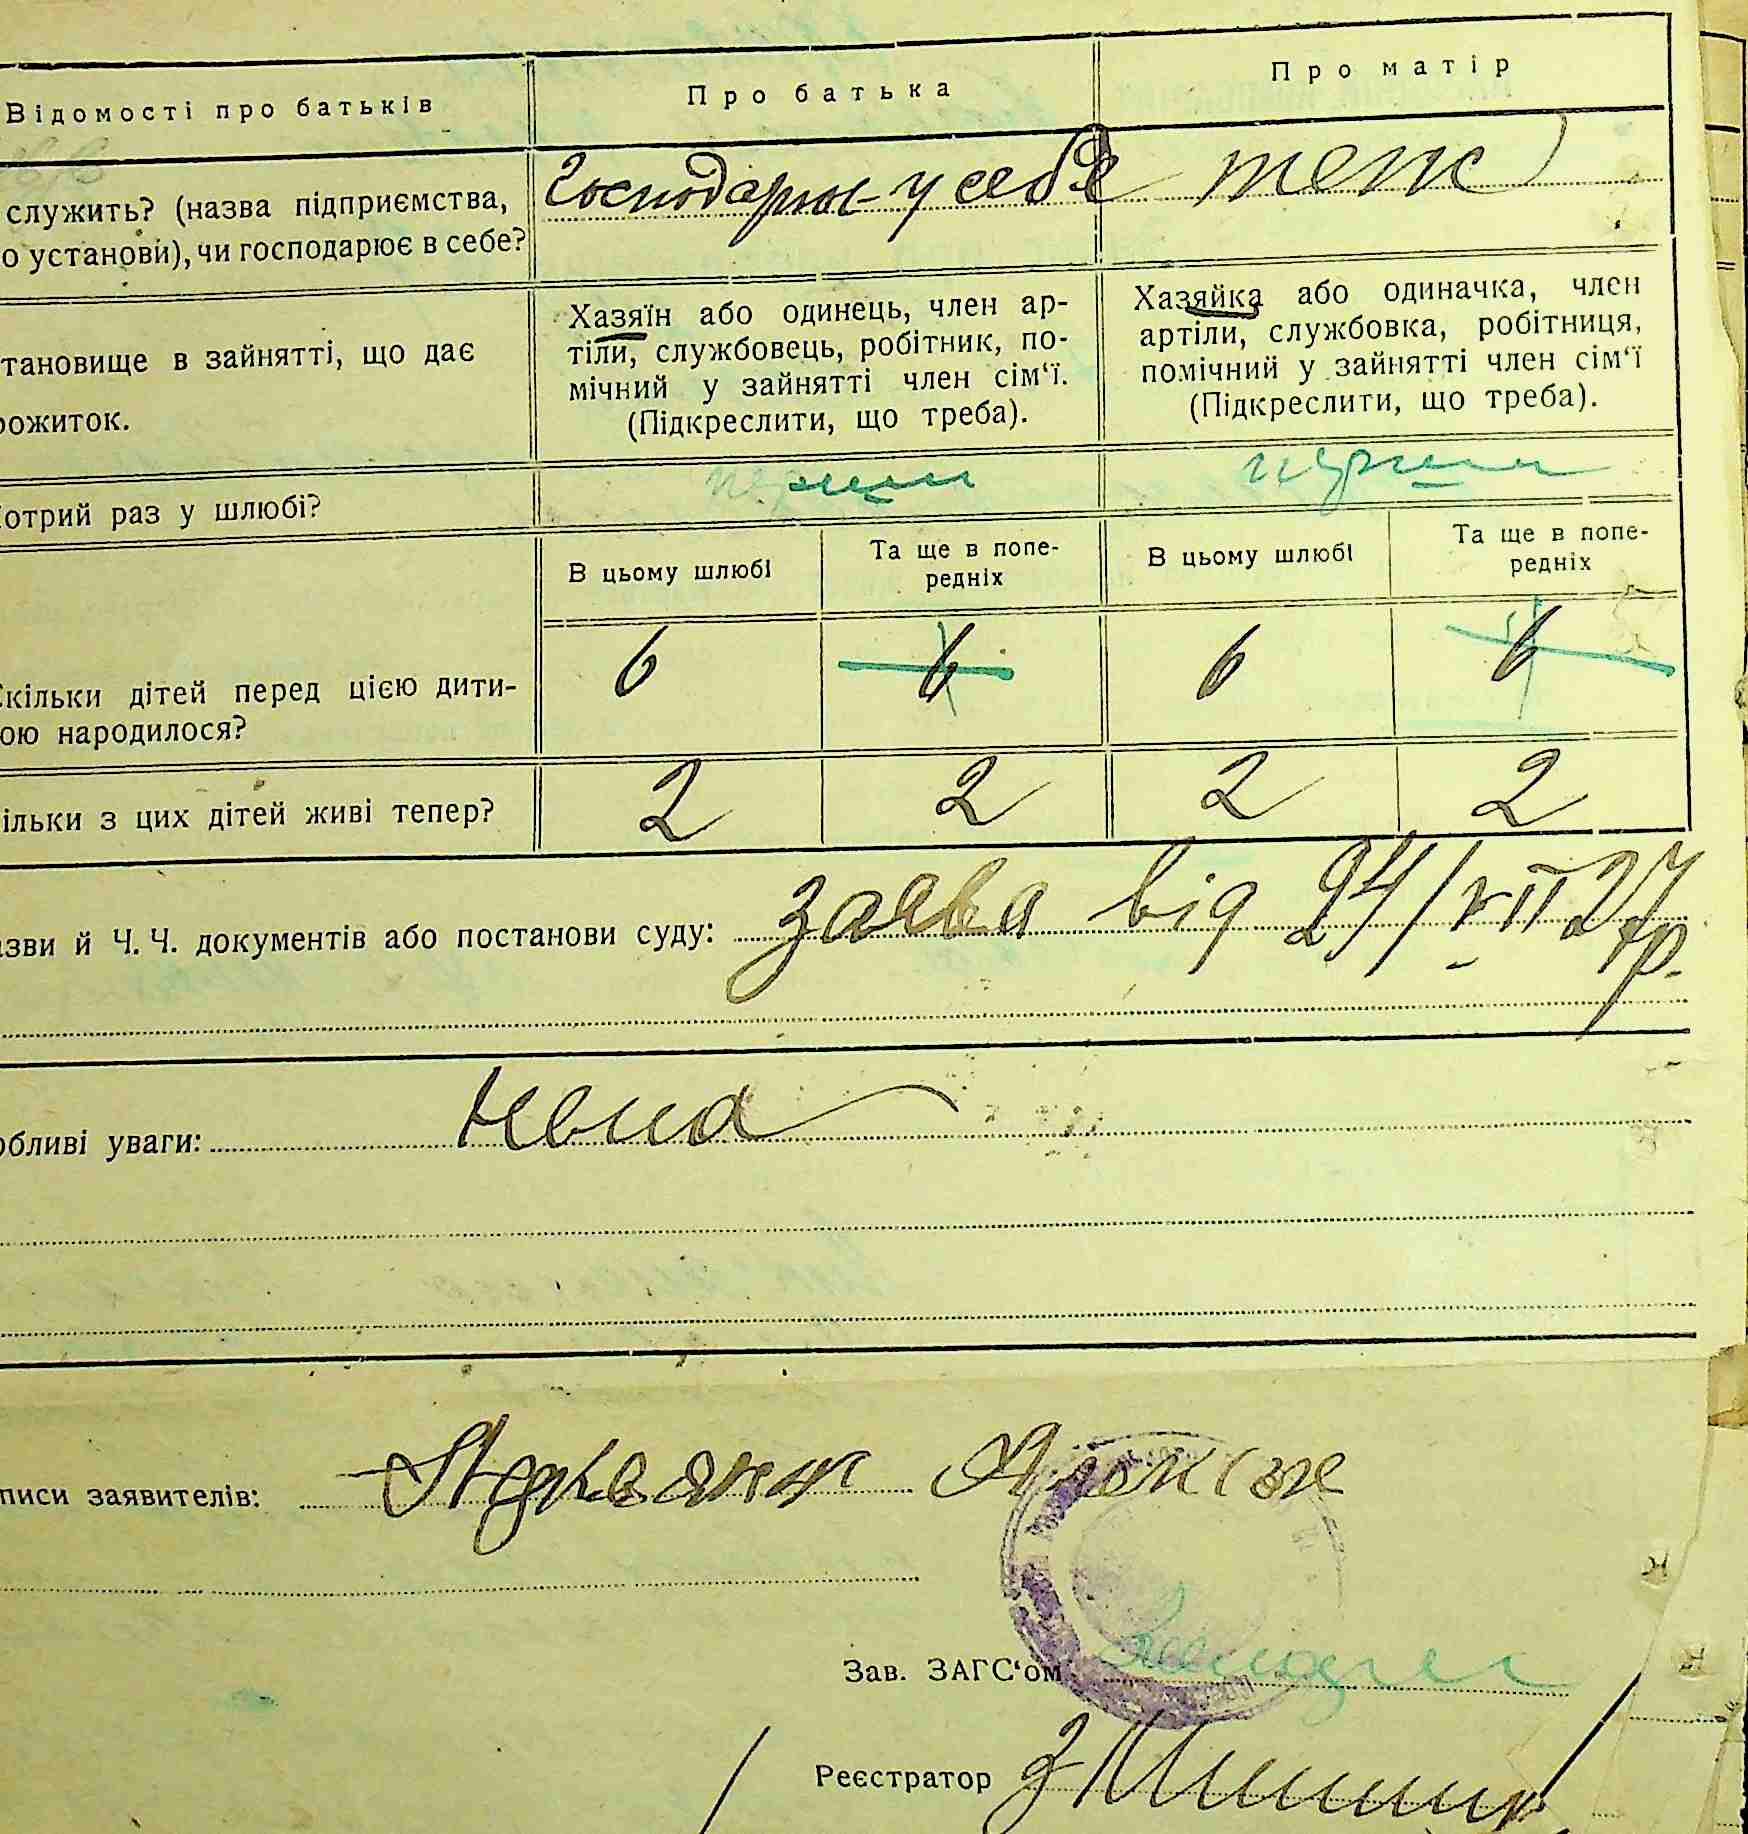 Відомості про батьків
Про батька
Про матір
служить? (назва підприємства,
о установи), чи господарює в себе?
Господарює у себе
теж
тановище в зайнятті, що дає
рожиток.
Хазяїн або одинець, член ар-
тіли, службовець, робітник, по-
мічний у зайнятті член сім‘ї.
(Підкреслити, що треба).
Хазяйка або одиначка, член
артіли, службовка, робітниця,
помічний у зайнятті член сім‘ї
(Підкреслити, що треба).
отрий раз у шлюбі?
перший
перший
В цьому шлюбі
Та ще в попе-
редніх
В цьому шлюбі
Та ще в попе-
редніх
кільки дітей перед цією дити-
ою народилося?
6
6
6
6
ільки з цих дітей живі тепер?
2
2
2
2
зви й Ч. Ч. документів або постанови суду: заява від 24/VII 27 р.
обливі уваги: нема
писи заявителів:
Зав. ЗАГС‘ом
Реєстратор